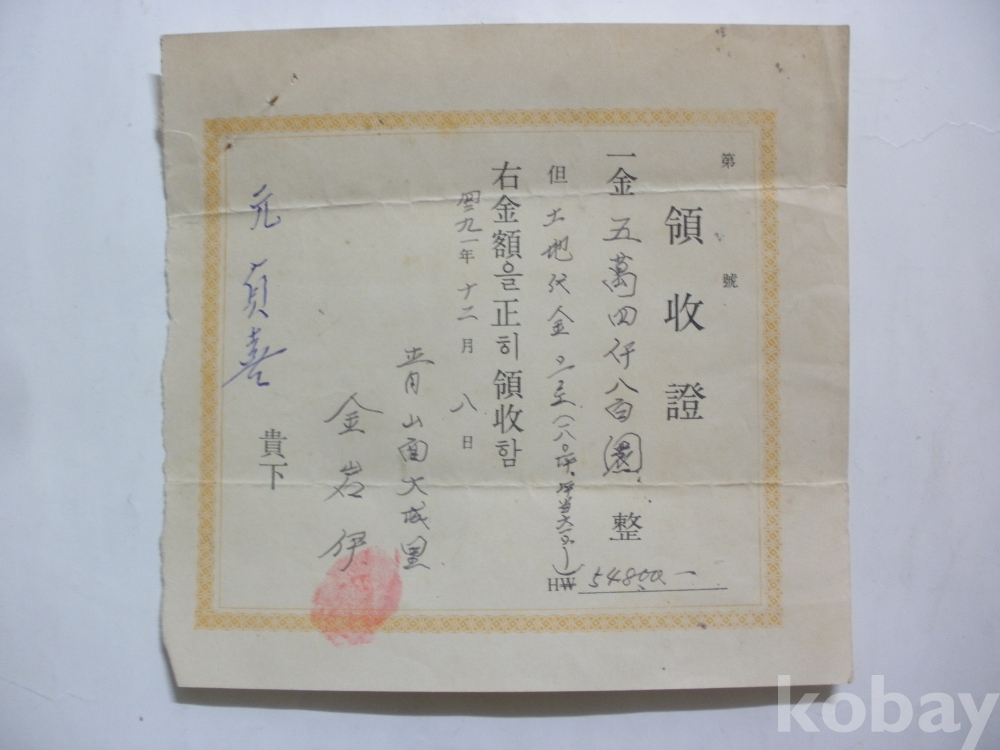 第 號
領收證
一金 五萬四仟八百圜 整
HW 54800.-
但 土地代金으로(一八〇坪,
右金額을正히領收함
四二九一年 十二月 八日
靑山面大成里
金岩伊
元貞喜 貴下
kobay